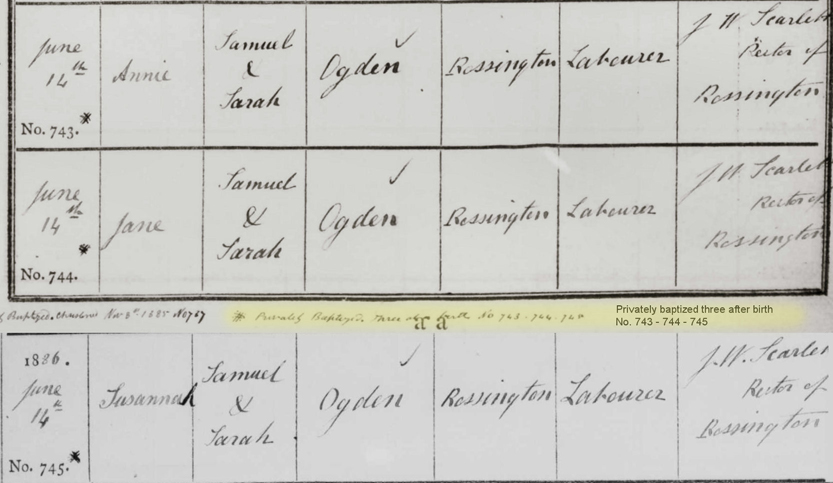 June 14th Annie Samuel & Sarah Ogden Rossington Labourer J W Scarlet Rector of Rossington
No. 743.*
June 14th Jane Samuel & Sarah Ogden Rossington Labourer J W Scarlet Rector of Rossington
No. 744.*
Baptized. Nov 8th 1885 No 707
* Privately Baptized. three after birth No 743 - 744 - 745
Privately baptized three after birth
No. 743 - 744 - 745
a a
1886.
June 14th Susannah Samuel & Sarah Ogden Rossington Labourer J. W. Scarlet Rector of Rossington
No. 745.*